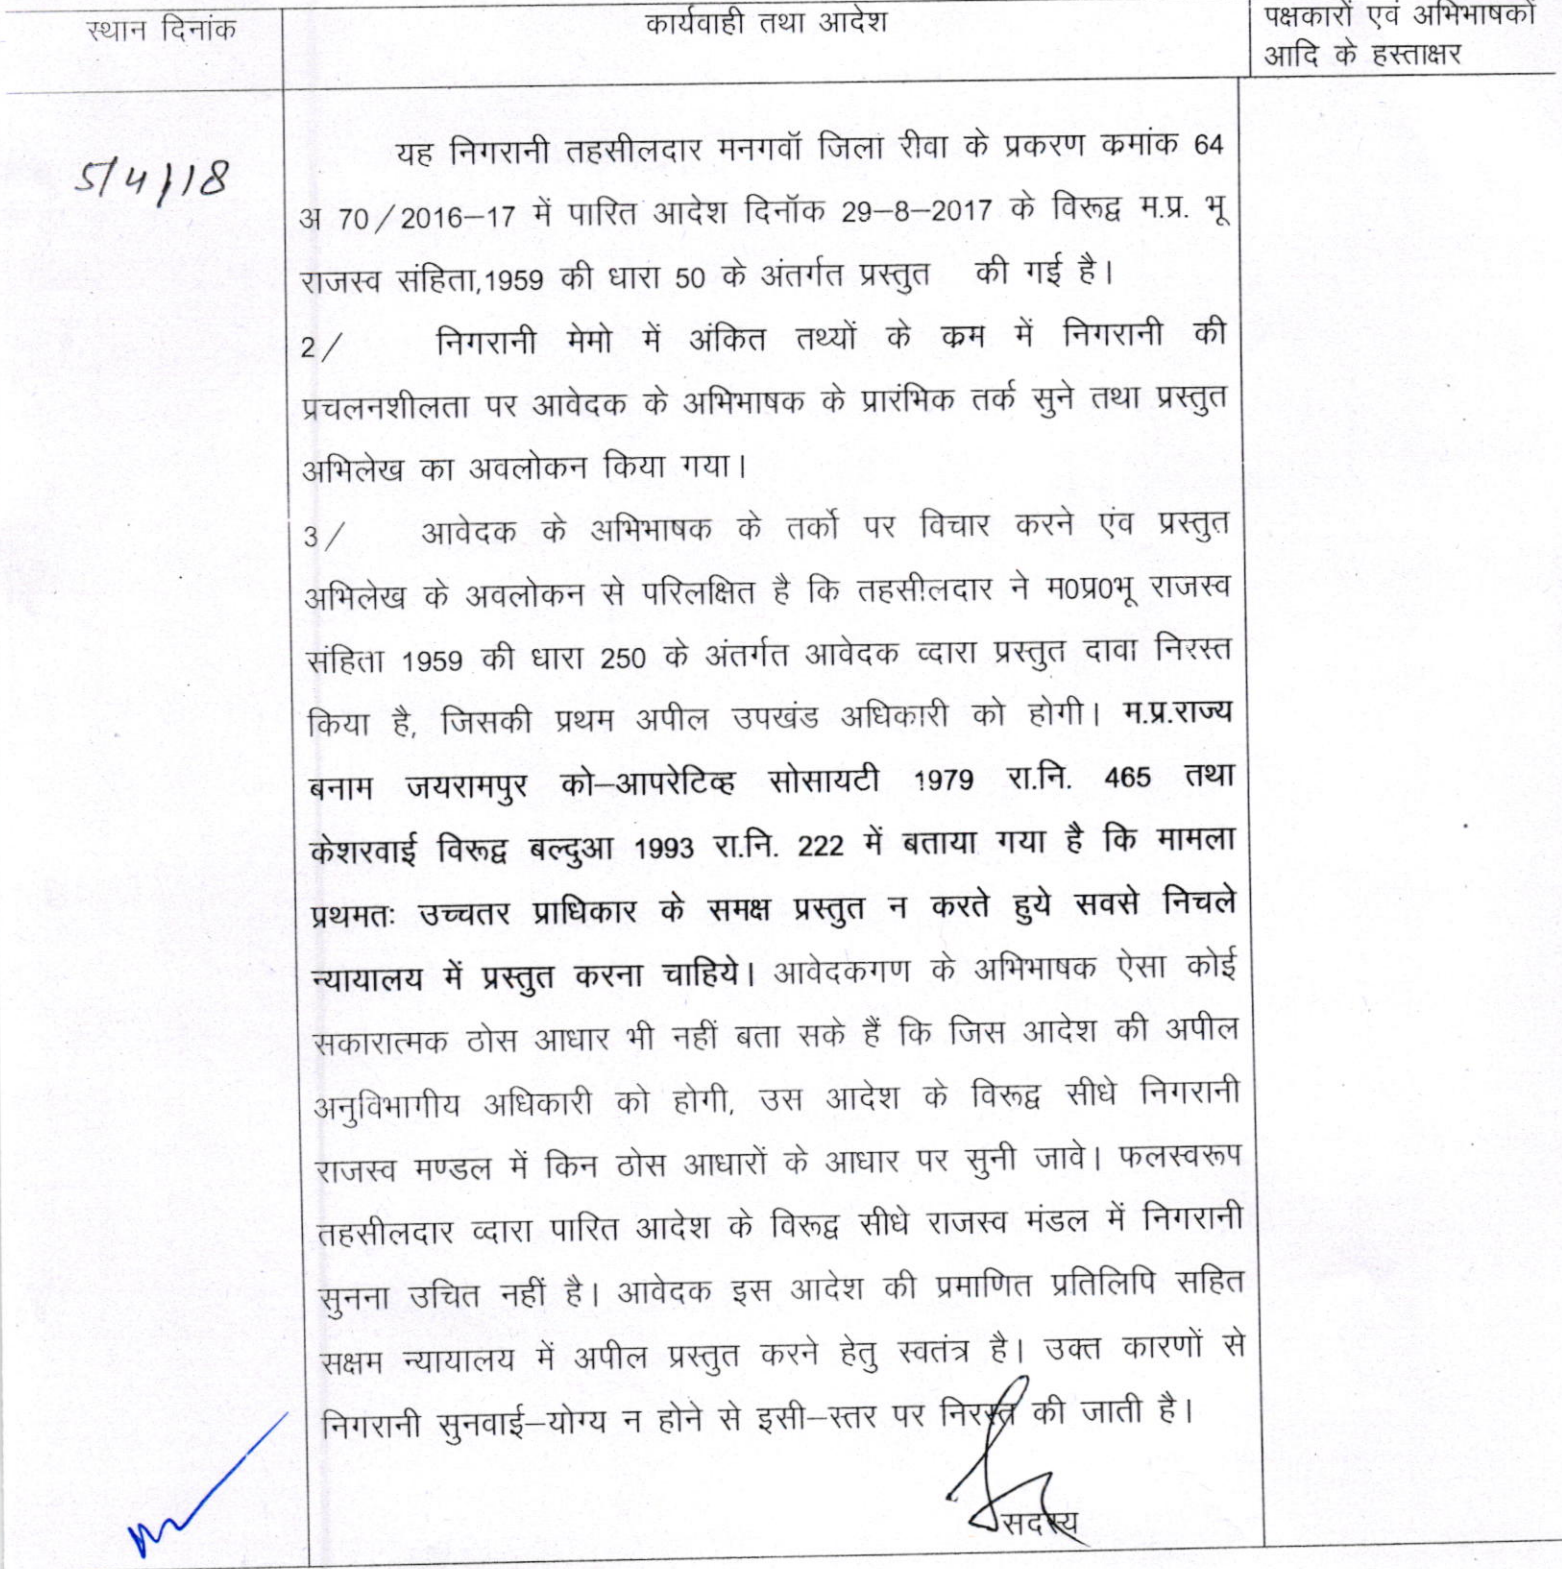 स्थान दिनांक
कार्यवाही तथा आदेश
पक्षकारों एवं अभिभाषकों
आदि के हस्ताक्षर
5/4/18
यह निगरानी तहसीलदार मनगवॉ जिला रीवा के प्रकरण कमांक 64
अ 70/2016–17 में पारित आदेश दिनॉक 29–8–2017 के विरूद्व म.प्र. भू
राजस्व संहिता,1959 की धारा 50 के अंतर्गत प्रस्तुत की गई है।
2/ निगरानी मेमो में अंकित तथ्यों के कम में निगरानी की
प्रचलनशीलता पर आवेदक के अभिभाषक के प्रारंभिक तर्क सुने तथा प्रस्तुत
अभिलेख का अवलोकन किया गया।
3/ आवेदक के अभिभाषक के तर्को पर विचार करने एंव प्रस्तुत
अभिलेख के अवलोकन से परिलक्षित है कि तहसीलदार ने म0प्र0भू राजस्व
संहिता 1959 की धारा 250 के अंतर्गत आवेदक व्दारा प्रस्तुत दावा निरस्त
किया है, जिसकी प्रथम अपील उपखंड अधिकारी को होगी। म.प्र.राज्य
बनाम जयरामपुर को–आपरेटिव्ह सोसायटी 1979 रा.नि. 465 तथा
केशरवाई विरूद्व बल्दुआ 1993 रा.नि. 222 में बताया गया है कि मामला
प्रथमतः उच्चतर प्राधिकार के समक्ष प्रस्तुत न करते हुये सवसे निचले
न्यायालय में प्रस्तुत करना चाहिये। आवेदकगण के अभिभाषक ऐसा कोई
सकारात्मक ठोस आधार भी नहीं बता सके हैं कि जिस आदेश की अपील
अनुविभागीय अधिकारी को होगी, उस आदेश के विरूद्व सीधे निगरानी
राजस्व मण्डल में किन ठोस आधारों के आधार पर सुनी जावे। फलस्वरूप
तहसीलदार व्दारा पारित आदेश के विरूद्व सीधे राजस्व मंडल में निगरानी
सुनना उचित नहीं है। आवेदक इस आदेश की प्रमाणित प्रतिलिपि सहित
सक्षम न्यायालय में अपील प्रस्तुत करने हेतु स्वतंत्र है। उक्त कारणों से
निगरानी सुनवाई–योग्य न होने से इसी–स्तर पर निरस्त की जाती है।
सदस्य